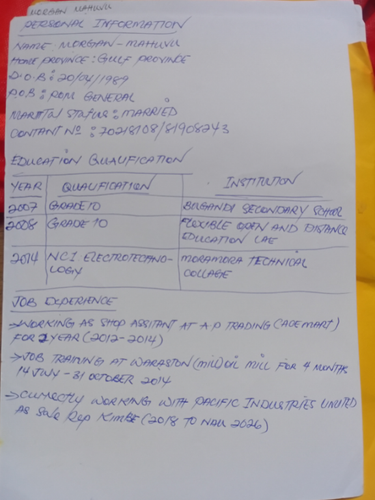 MORGAN MAHUVU
PERSONAL INFORMATION
NAME MORGAN - MAHUVU
HOME PROVINCE : GULF PROVINCE
D.O.B : 20/04/1989
P.O.B : POM GENERAL
MARITTAL STATUS : MARRIED
CONTANT NO : 70218108/81908243
EDUCATION QUALIFICATION
YEAR QUALIFICATION INSTITUTION
2007 GRADE 10 BUGANDI SECONDARY SCHOOL
2008 GRADE 10 FLEXIBLE OPEN AND DISTANCE
EDUCATION LAE
2014 NC1 ELECTROTECHNO- MORAMORA TECHNICAL
LOGY COLLAGE
JOB EXPERIENCE
→ WORKING AS SHOP ASSITANT AT A.P TRADING (ACE MART)
FOR 2 YEAR (2012-2014)
→ JOB TRAINING AT (MILL) OIL MILL FOR 4 MONTHS
14 JULY - 31 OCTOBER 2014
→ CURRECTLY WORKING WITH PACIFIC INDUSTRIES LIMITED
AS Sale Rep KIMBE (2018 TO NAU 2026)